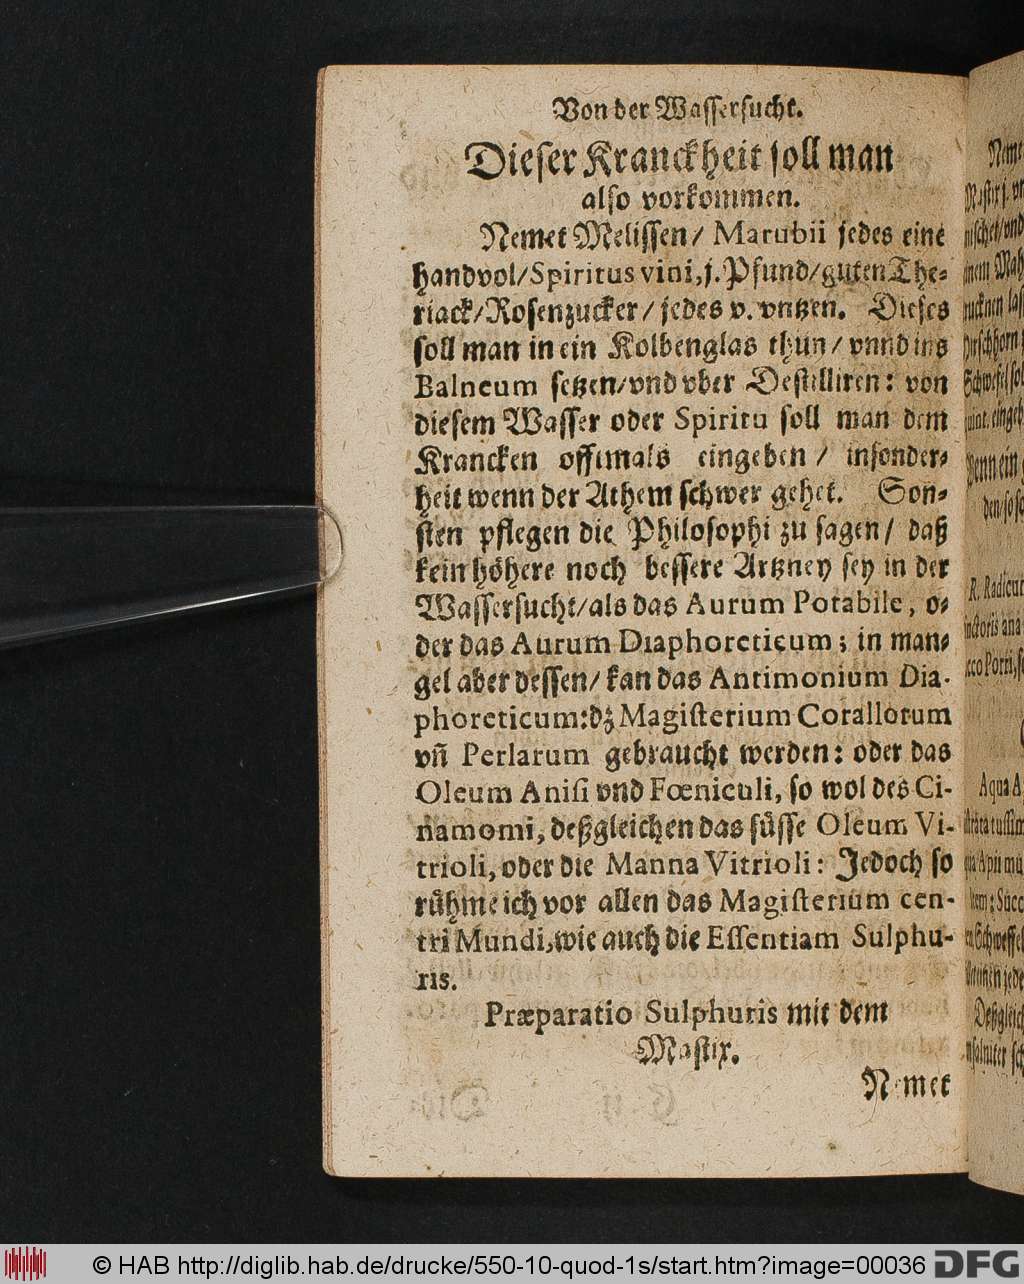 Von der Wasserſucht.
Dieſer Kranckheit ſoll man
alſo vorkommen.
Nemet Meliſſen/ Marubii jedes eine
handvol/Spiritus vini, j. Pfund/guten The⸗
riack/Roſenzucker/ jedes v. vntzen. Dieſes
ſoll man in ein Kolbenglas thun/ vnnd ins
Balneum ſetzen/vnd vber Deſtilliren: von
dieſem Waſſer oder Spiritu ſoll man dem
Krancken offtmals eingeben / inſonder⸗
heit wenn der Athem ſchwer gehet. Son⸗
ſten pflegen die Philoſophi zu ſagen/ daß
kein höhere noch beſſere Artzney ſey in der
Waſſerſucht/als das Aurum Potabile, o⸗
der das Aurum Diaphoreticum; in man⸗
gel aber deſſen/ kan das Antimonium Dia-
phoreticum: dz Magiſterium Corallorum
vñ Perlarum gebraucht werden: oder das
Oleum Aniſi vnd Fœniculi, ſo wol des Ci-
namomi, deßgleichen das ſüſſe Oleum Vi-
trioli, oder die Manna Vitrioli: Jedoch ſo
rühme ich vor allen das Magiſterium cen-
tri Mundi, wie auch die Eſſentiam Sulphu-
ris.
Præparatio Sulphuris mit dem
Maſtix.
Nemet
© HAB http://diglib.hab.de/drucke/550-10-quod-1s/start.htm?image=00036 DFG